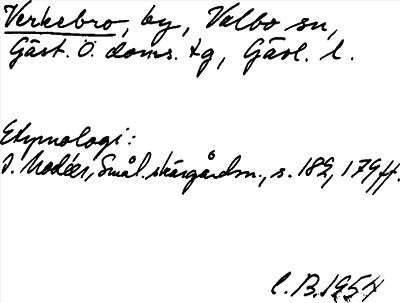 Verkebro, by, Valbo sn,
Gäst. Ö. doms. tg, Gävl. l.
Etymologi:
I. Modéer, Smål. skärgårdsn., s. 182, 179 ff.
C. B. 1954